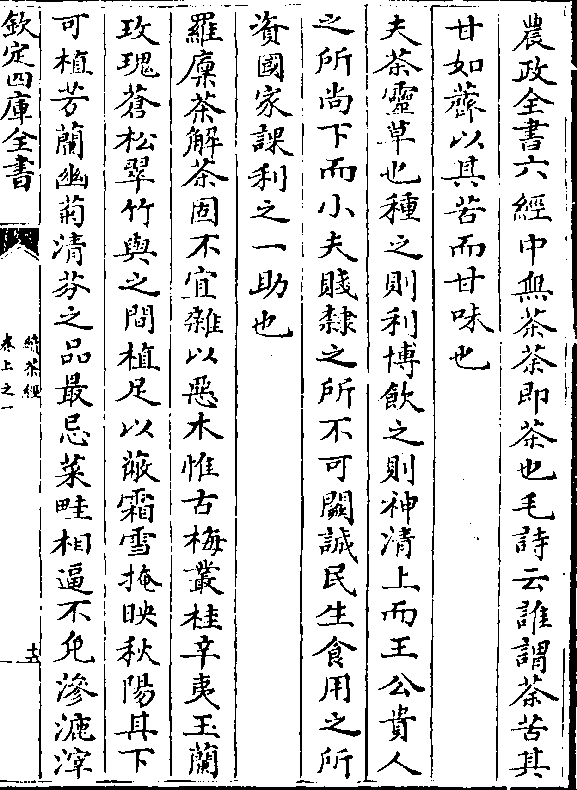 農政全書六經中無茶荼即茶也毛詩云誰謂荼苦其
甘如薺以其苦而甘味也
夫茶靈草也種之則利博飲之則神清上而王公貴人
之所尚下而小夫賤隸之所不可闕誠民生食用之所
資國家課利之一助也
羅廩茶解茶固不宜雜以惡木惟古梅叢桂辛夷玉蘭
玫瑰蒼松翠竹與之間植足以蔽霜雪掩映秋陽其下
可植芳蘭幽菊清芬之品最忌菜畦相逼不免滲漉滓
欽定四庫全書
續茶經
卷上之一
十五